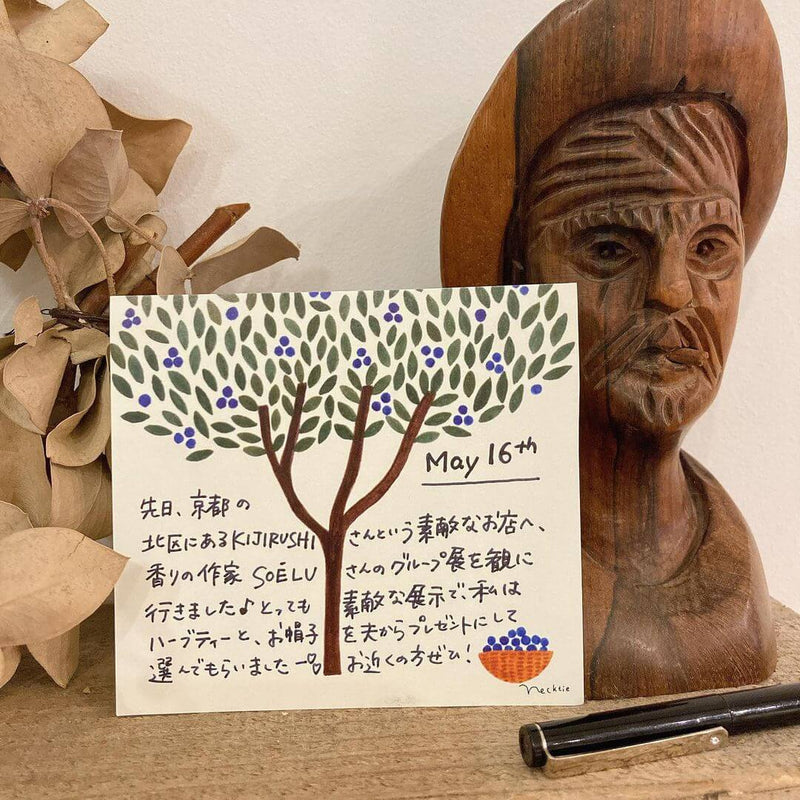 May 16th
先日、京都の
北区にあるKIJIRUSHIさんという素敵なお店へ、
香りの作家 SOĒLUさんのグループ展を観に
行きました♪とっても素敵な展示で、私は
ハーブティーと、お帽子を夫からプレゼントにして
選んでもらいました♡お近くの方ぜひ!
necktie